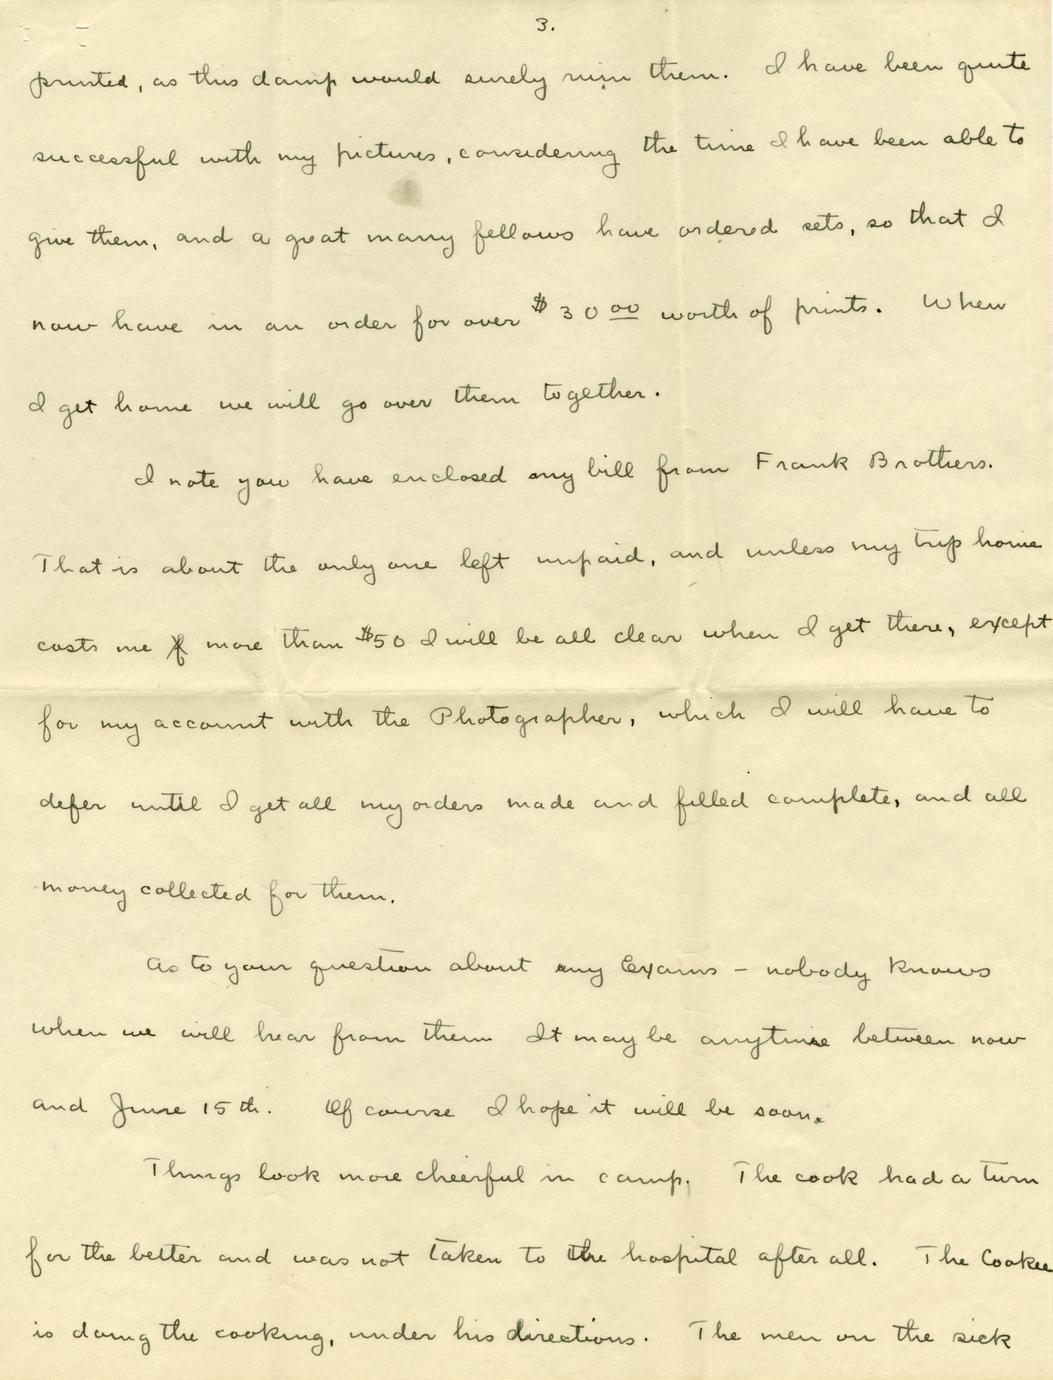 3.
printed, as this damp would surely ruin them. I have been quite
successful with my pictures, considering the time I have been able to
give them, and a great many fellows have ordered sets, so that I
now have in an order for over $30 00 worth of prints. When
I get home we will go over them together.
I note you have enclosed my bill from Frank Brothers.
That is about the only one left unpaid, and unless my trip home
costs me more than $50 I will be all clear when I get there, except
for my account with the Photographer, which I will have to
defer until I get all my orders made and filled complete, and all
money collected for them.
As to your question about my Exams – nobody knows
when we will hear from them It may be anytime between now
and June 15th. Of course I hope it will be soon.
Things look more cheerful in camp. The cook had a turn
for the better and was not taken to the hospital after all. The Cookee
is doing the cooking, under his directions. The men on the sick